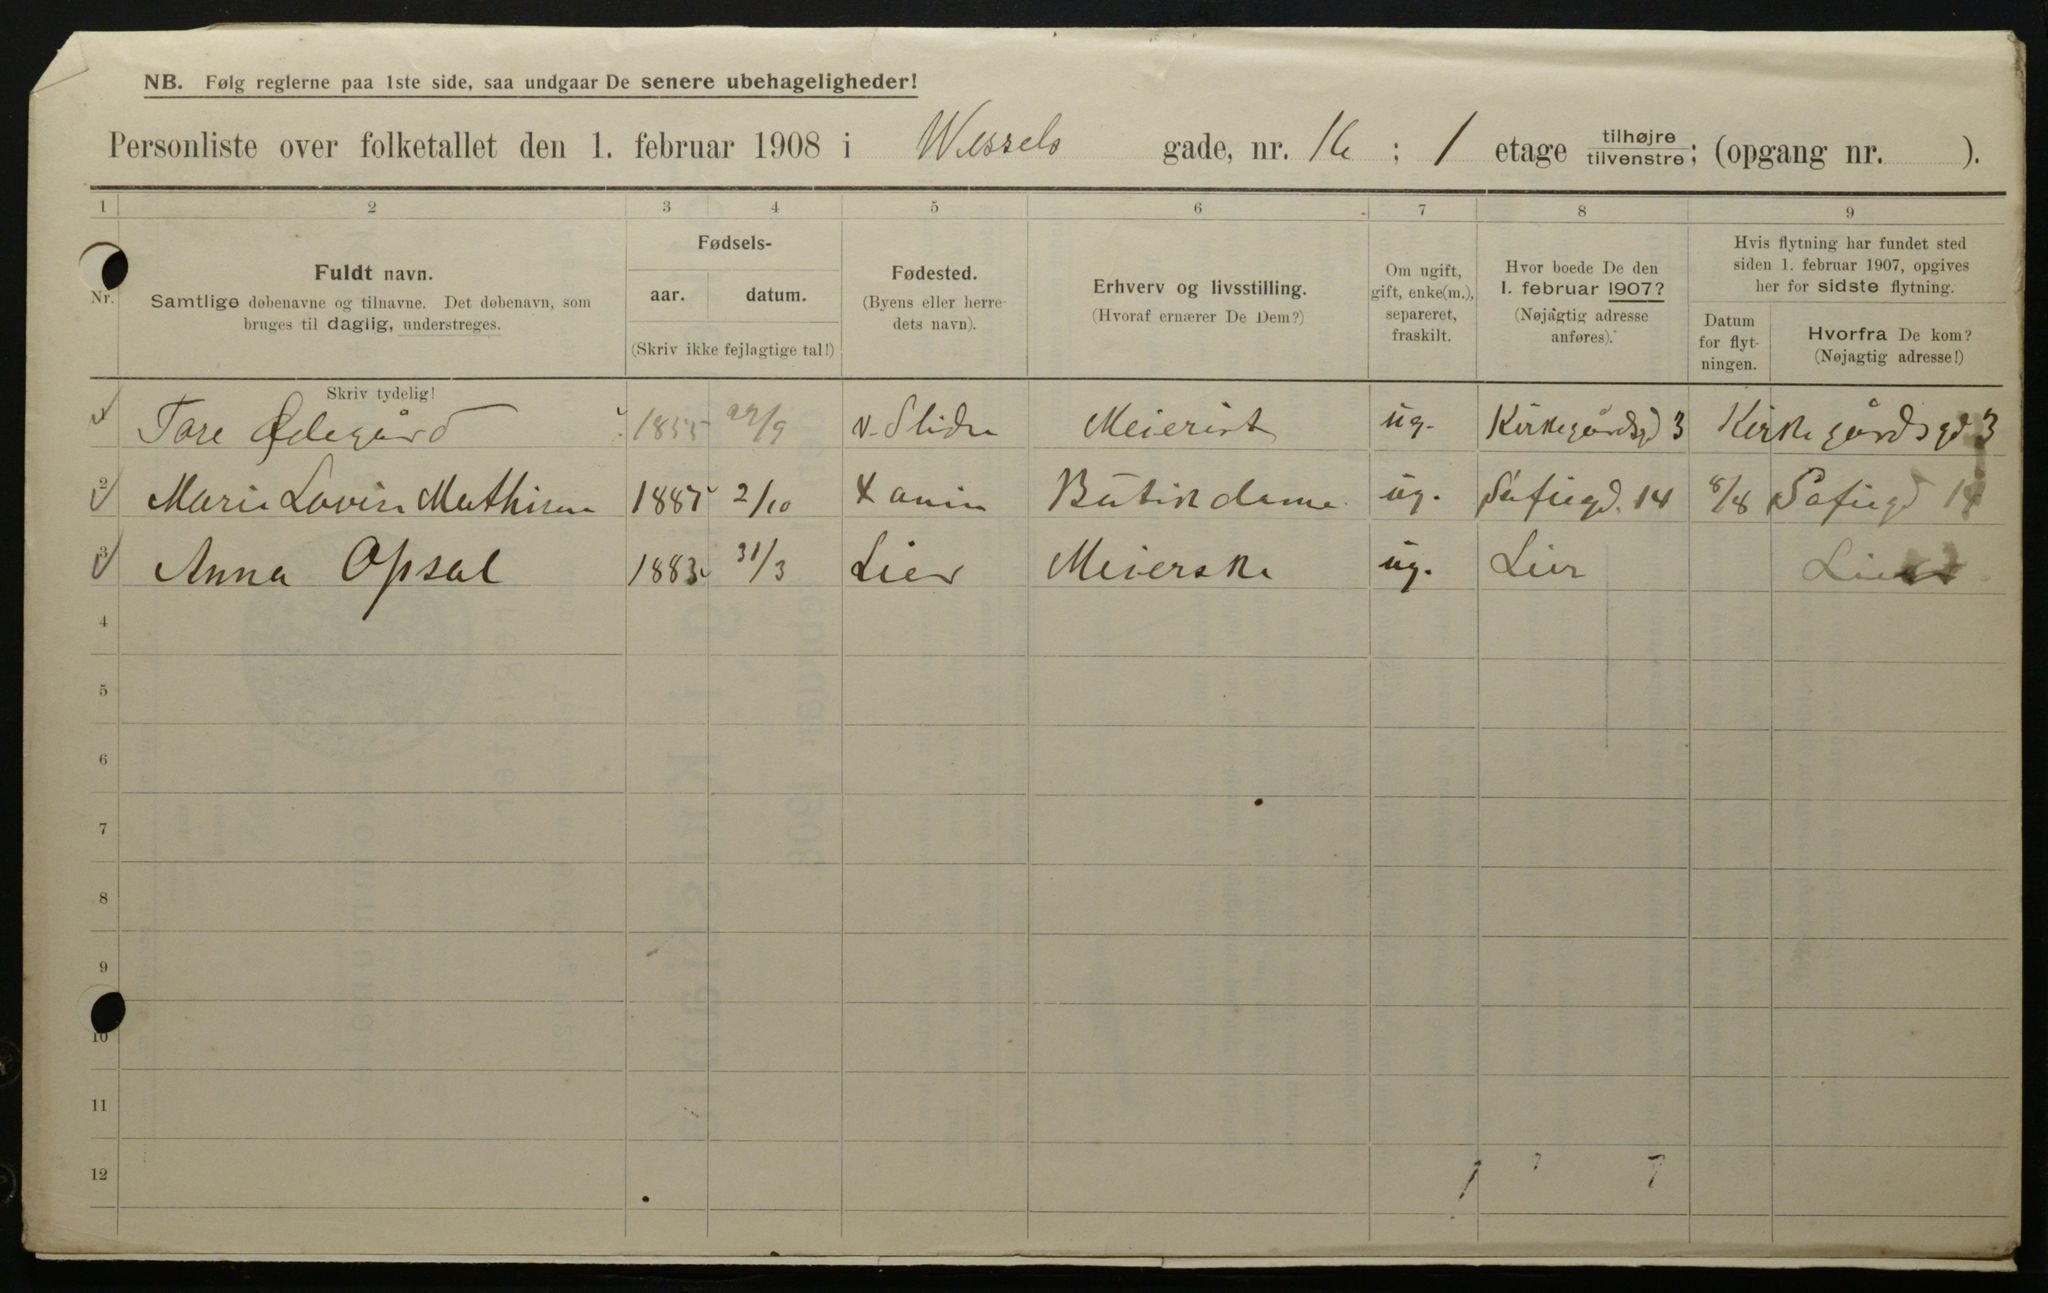 NB. Følg reglerne paa 1ste side, saa undgaar De senere ubehageligheder!
Personliste over folketallet den 1. februar 1908 i Wessels gade, nr. 16 ; 1 etage tilhøjre/tilvenstre; (opgang nr. ).
1 2 3 4 5 6 7 8 9
Nr.
Fuldt navn.
Samtlige døbenavne og tilnavne. Det døbenavn, som
bruges til daglig, understreges.
Fødsels-
aar. datum.
(Skriv ikke fejlagtige tal!)
Fødested.
(Byens eller herre-
dets navn).
Erhverv og livsstilling.
(Hvoraf ernærer De Dem?)
Om ugift,
gift, enke(m.),
separeret,
fraskilt.
Hvor boede De den
1. februar 1907?
(Nøjagtig adresse
anføres).
Hvis flytning har fundet sted
siden 1. februar 1907, opgives
her for sidste flytning.
Datum
for flyt-
ningen.
Hvorfra De kom?
(Nøjagtig adresse!)
Skriv tydelig!
1 Tore Ødegård 1855 22/9 v. Slidre Meierist ug. Kirkegårdsgd 3 Kirkegårdsgd 3
2 Marie Lovise Mathisen 1885 2/10 Butikdame ug. Sofiegd. 14 8/8 Sofiegd 14
3 Anna Opsal 1883 31/3 Lier Meierske ug. Lier Lier
4
5
6
7
8
9
10
11
12